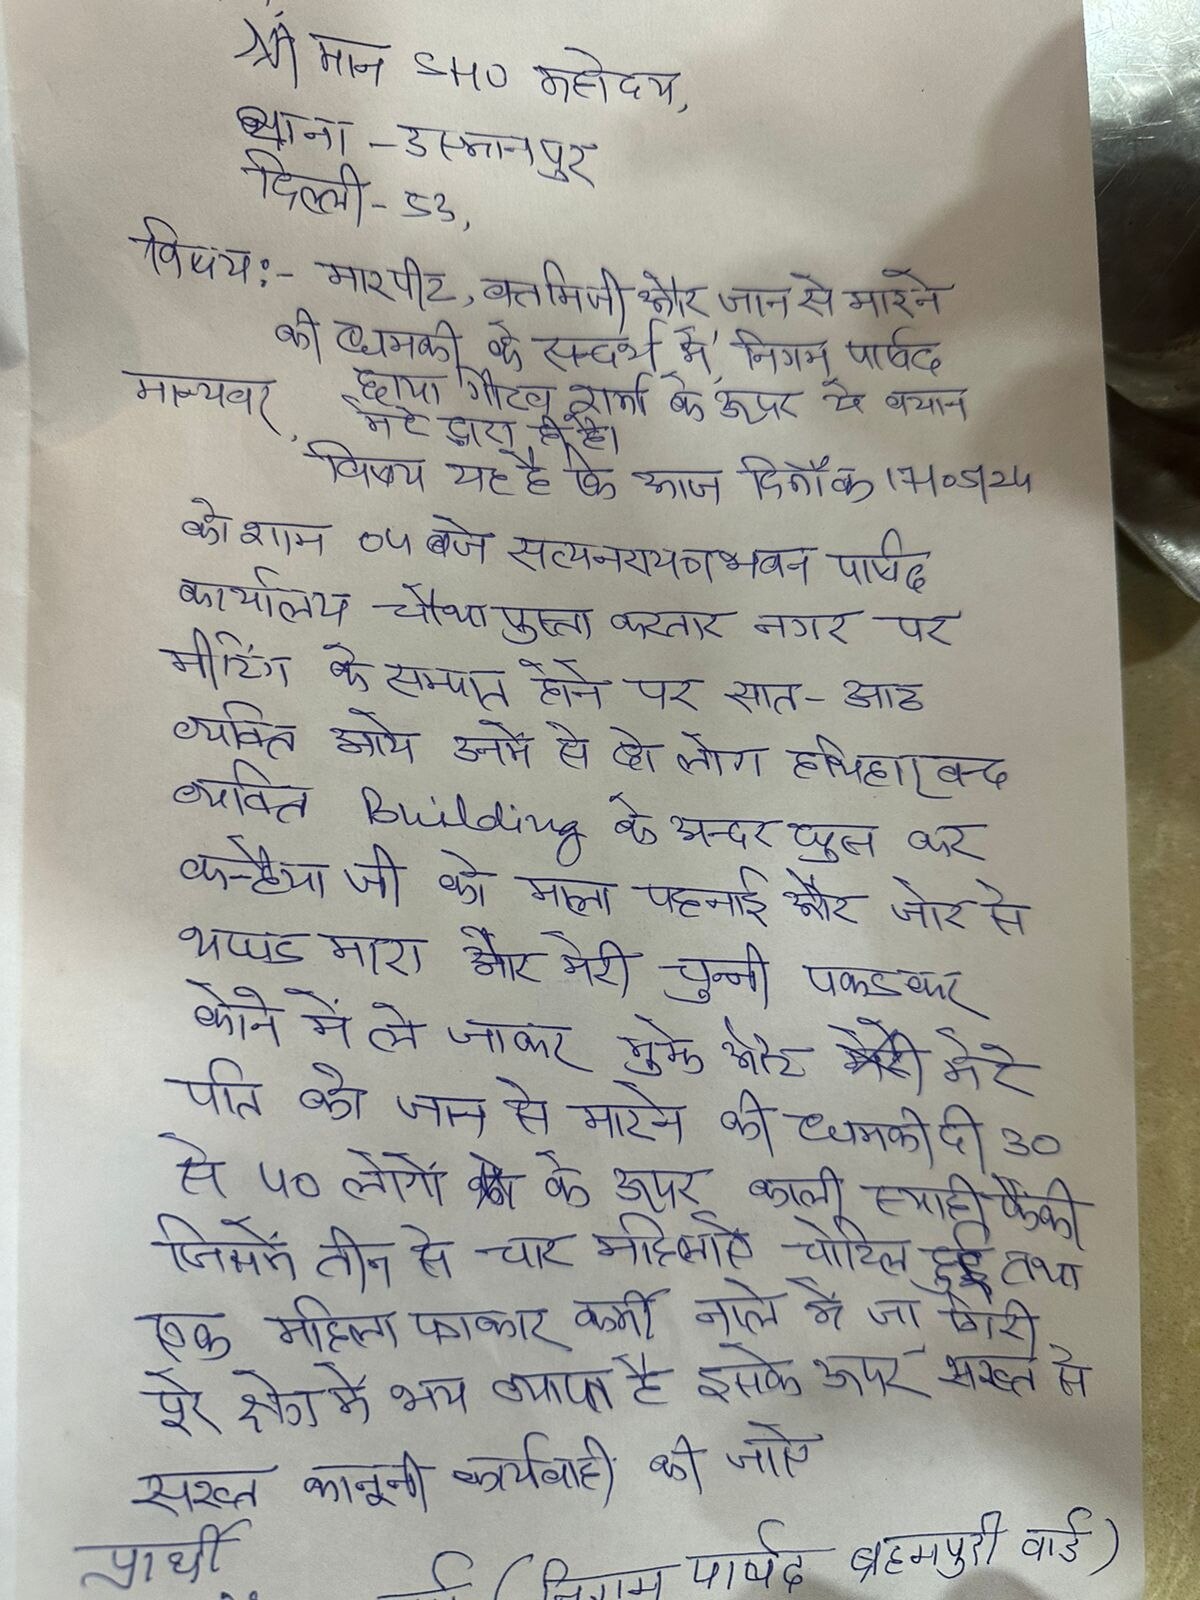 श्री मान SHO महोदय,
थाना - उस्मानपुर
दिल्ली - 53,
विषय :- मारपीट, वतमिजी और जान से मारने
की धमकी के सन्दर्भ में, निगम पार्षद
छाया गौरव शर्मा के ऊपर ये बयान
मान्यवर,
मेरे द्वारा ही है।
विषय यह है कि आज दिनाँक 17/05/24
को शाम 04 बजे सत्यनरायण भवन पार्षद
कार्यालय चौथा पुस्ता करतार नगर पर
मीटिंग के समापत होने पर सात - आठ
व्यक्ति आये उनमें से दो लोग हथिहार बन्द
व्यक्ति Building के अन्दर घुस कर
कन्हैया जी को माला पहनाई और जोर से
थप्पड मारा और मेरी चुन्नी पकडकर
कोने में ले जाकर मुझे और मेरे
पति को जान से मारने की धमकी दी 30
से 40 लोगों के ऊपर काली स्याही फेंकी
जिसमें तीन से चार महिलाऐ चोटिल हुई तथा
एक महिला पत्रकार कर्मी नाले में जा गिरी
पूरे क्षेत्र में भय व्यापत है इसके ऊपर सख्त से
सख्त कानूनी कार्यवाही की जाऐ
प्रार्थी
(निगम पार्षद ब्रहमपुरी वार्ड)